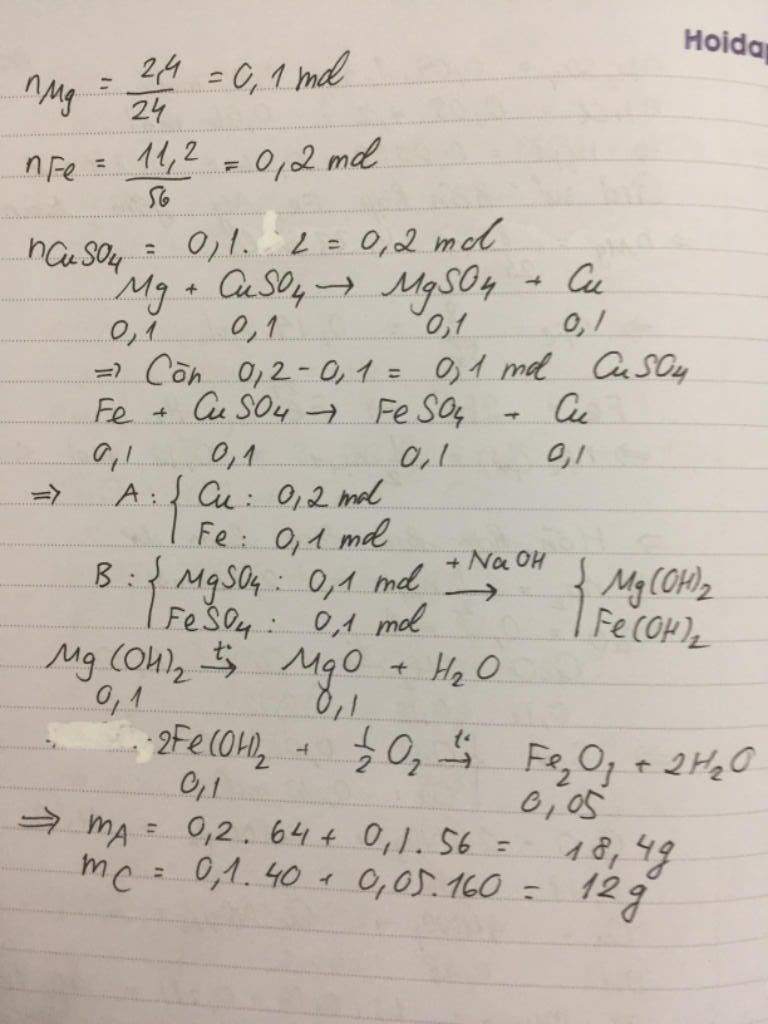 Hoidap
nMg = 2,4/24 = 0,1 mol
nFe = 11,2/56 = 0,2 mol
nCuSO4 = 0,1. 2 = 0,2 mol
Mg + CuSO4 → MgSO4 + Cu
0,1 0,1 0,1 0,1
=> Còn 0,2 - 0,1 = 0,1 mol CuSO4
Fe + CuSO4 → FeSO4 + Cu
0,1 0,1 0,1 0,1
=> A : { Cu : 0,2 mol
Fe : 0,1 mol
B : { MgSO4 : 0,1 mol + NaOH → { Mg(OH)2
FeSO4 : 0,1 mol Fe(OH)2
Mg(OH)2 t° → MgO + H2O
0,1 0,1
2Fe(OH)2 + 1/2 O2 t° → Fe2O3 + 2H2O
0,1 0,05
=> mA = 0,2 . 64 + 0,1 . 56 = 18,4g
mC = 0,1 . 40 + 0,05 . 160 = 12g